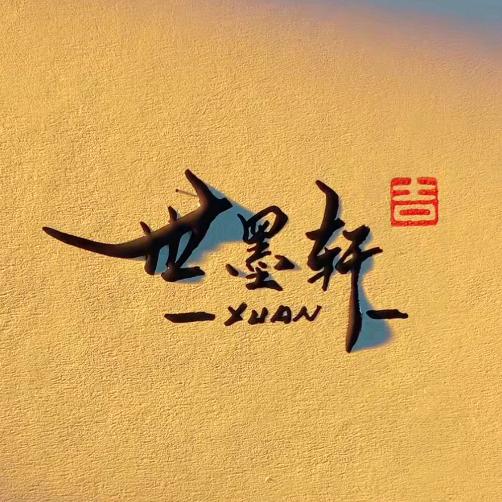 世墨轩
吉
XUAN